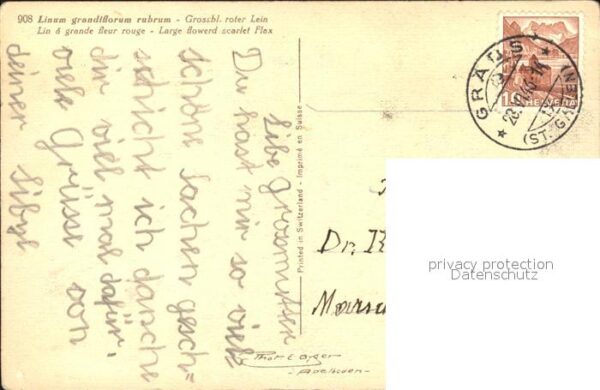 908 Linum grandiflorum rubrum - Grossbl. roter Lein
Lin à grande fleur rouge - Large flowerd scarlet Flax
Liebe Grosmutter
Du hast mir so viele
schöne sachen gesch=
schickt ich danche
dir viel mal dafür.
viele Grüsse von
deiner Sibyl
Printed in Switzerland - Imprimé en Suisse
Photo E. Gyger
- Adelboden -
10
HELVETIA
GRABS
(ST. GALLEN)
Dr.
privacy protection
Datenschutz